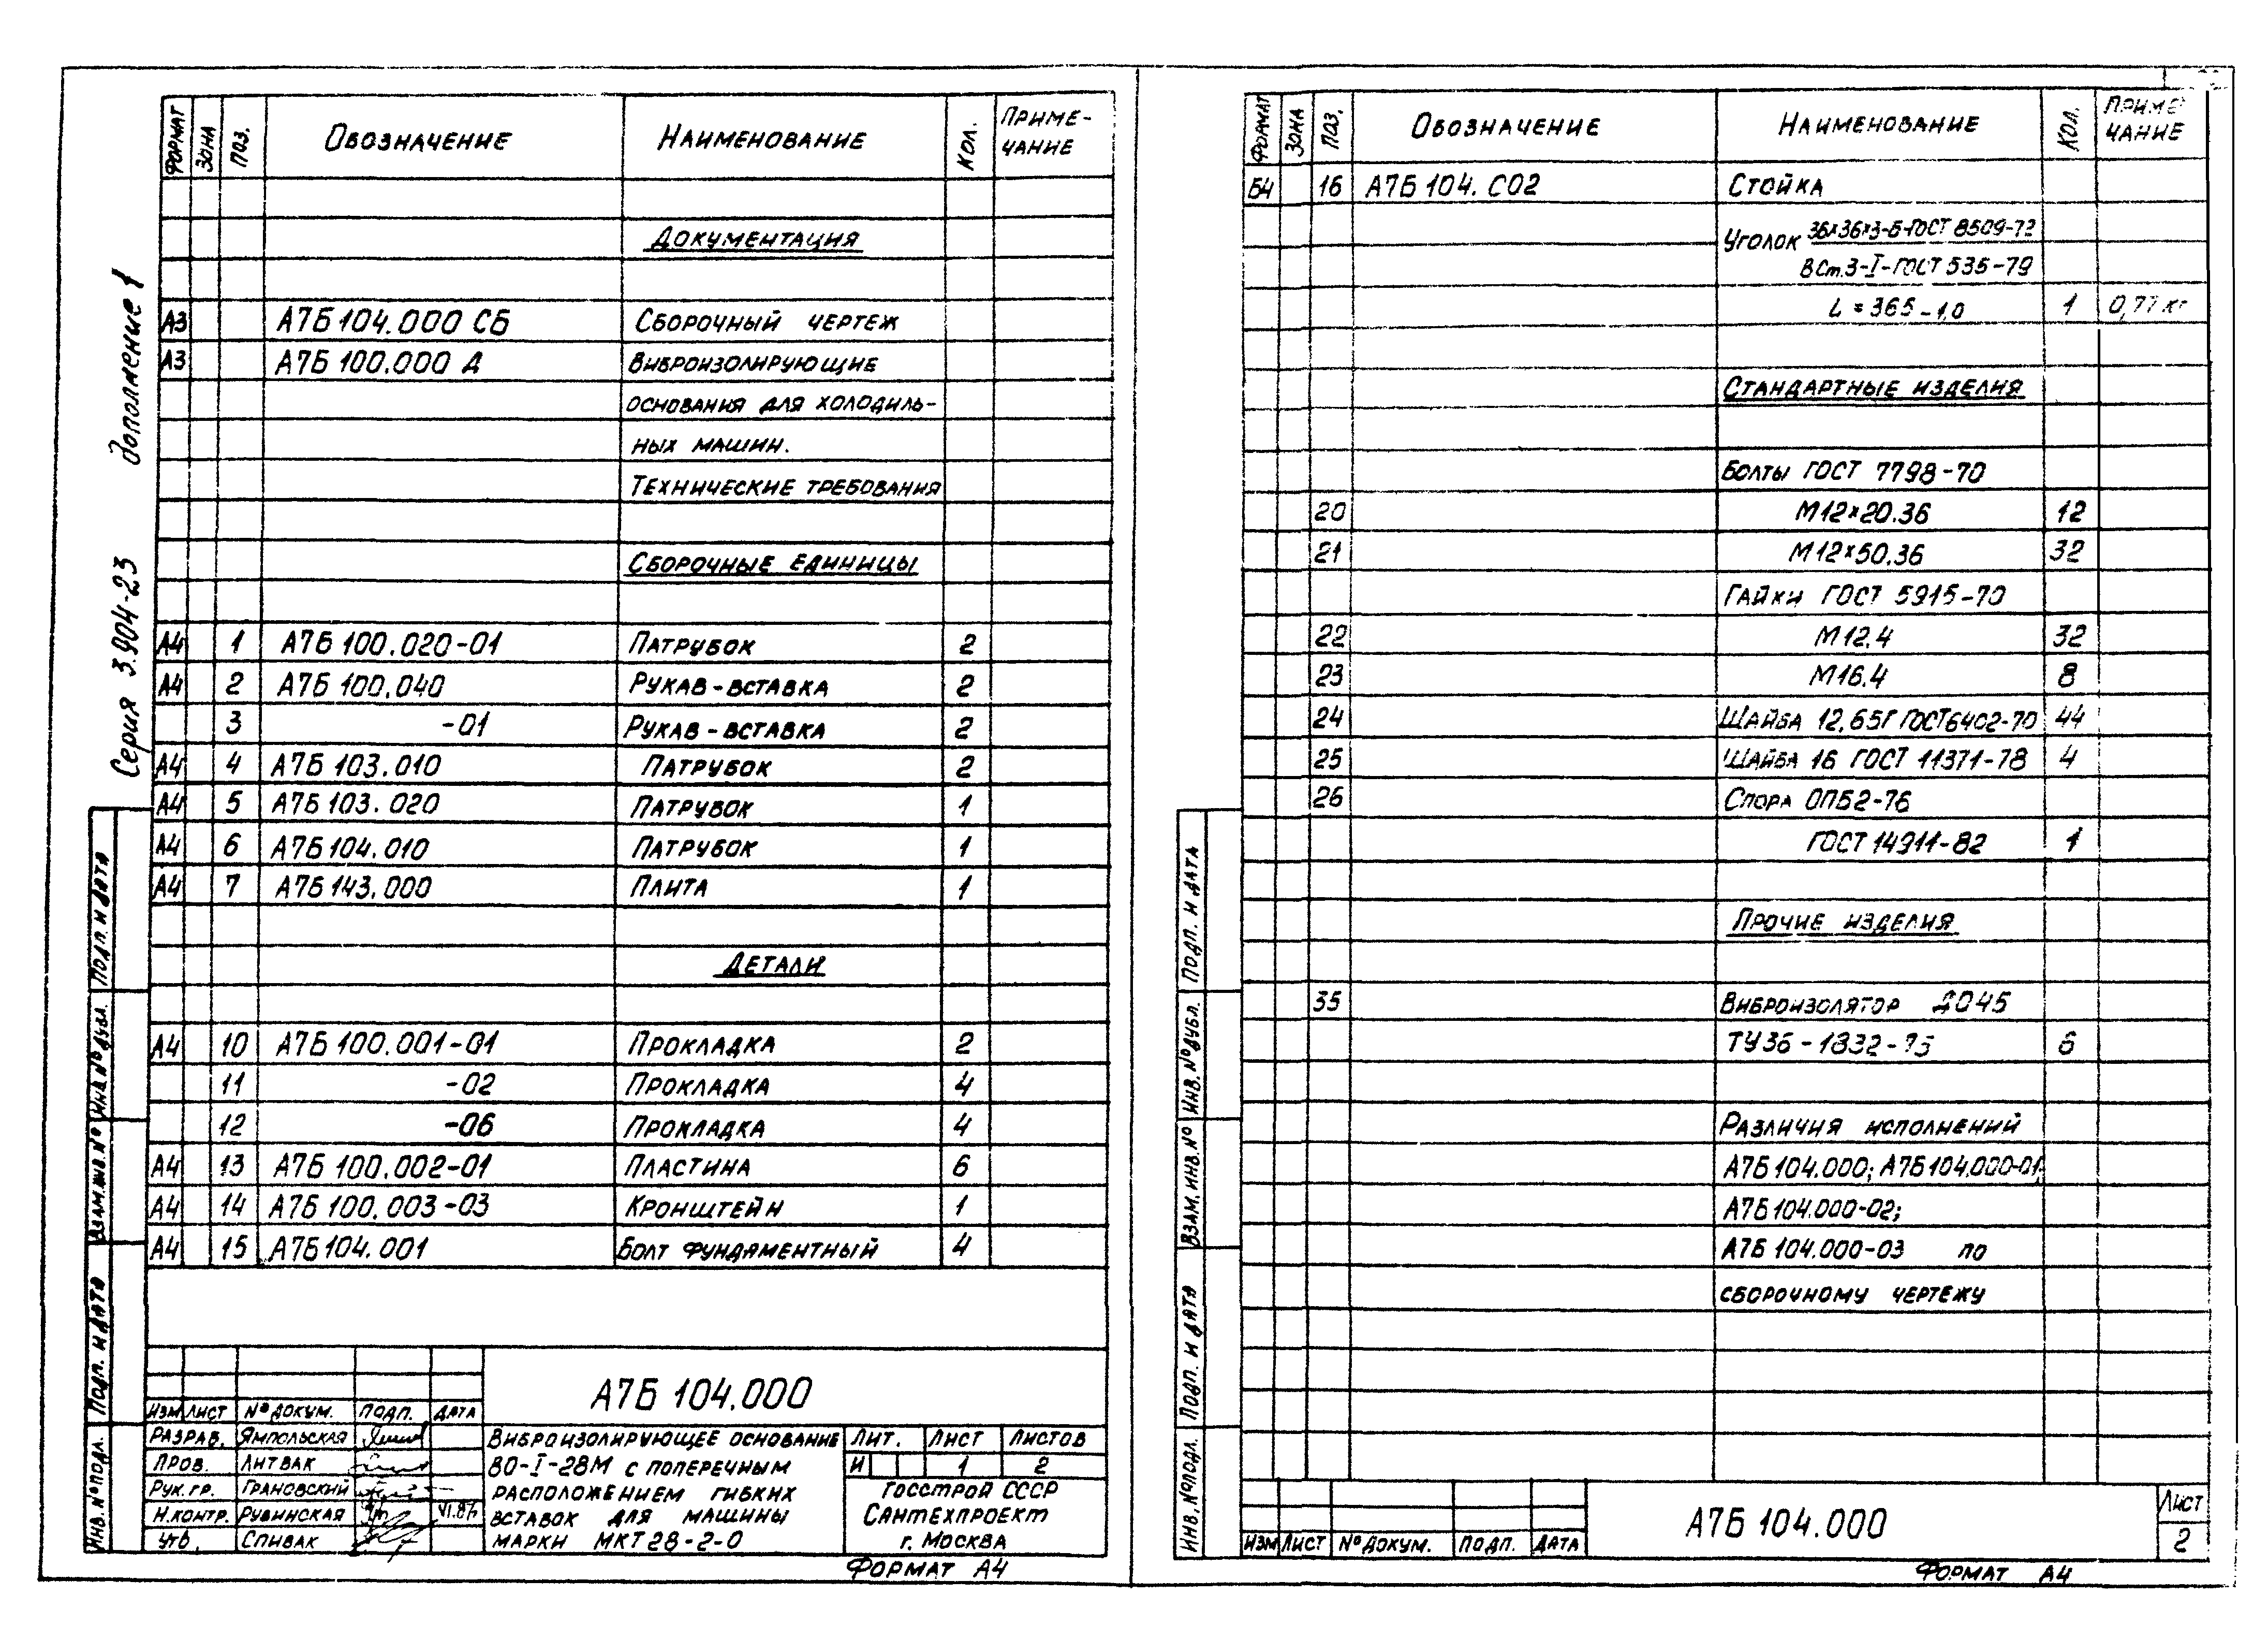 Серия 3.904-23 дополнение 1
ФОРМАТ ЗОНА ПОЗ. ОБОЗНАЧЕНИЕ НАИМЕНОВАНИЕ КОЛ. ПРИМЕ-
ЧАНИЕ
ДОКУМЕНТАЦИЯ
А3 А7Б 104.000 СБ СБОРОЧНЫЙ ЧЕРТЕЖ
А3 А7Б 100.000 Д ВИБРОИЗОЛИРУЮЩИЕ
ОСНОВАНИЯ ДЛЯ ХОЛОДИЛЬ-
НЫХ МАШИН.
ТЕХНИЧЕСКИЕ ТРЕБОВАНИЯ
СБОРОЧНЫЕ ЕДИНИЦЫ
А4 1 А7Б 100.020-01 ПАТРУБОК 2
А4 2 А7Б 100.040 РУКАВ-ВСТАВКА 2
3 -01 РУКАВ-ВСТАВКА 2
А4 4 А7Б 103.010 ПАТРУБОК 2
А4 5 А7Б 103.020 ПАТРУБОК 1
А4 6 А7Б 104.010 ПАТРУБОК 1
А4 7 А7Б 143.000 ПЛИТА 1
ДЕТАЛИ
А4 10 А7Б 100.001-01 ПРОКЛАДКА 2
11 -02 ПРОКЛАДКА 4
12 -06 ПРОКЛАДКА 4
А4 13 А7Б 100.002-01 ПЛАСТИНА 6
А4 14 А7Б 100.003-03 КРОНШТЕЙН 1
А4 15 А7Б 104.001 БОЛТ ФУНДАМЕНТНЫЙ 4
ПОДП. И ДАТА
ИНВ. № ДУБЛ.
ВЗАМ. ИНВ. №
ПОДП. И ДАТА
ИНВ. № ПОДЛ.
А7Б 104.000
ИЗМ ЛИСТ № ДОКУМ. ПОДП. ДАТА
РАЗРАБ. ЯМПОЛЬСКАЯ
ПРОВ. ЛИТВАК
РУК. ГР. ГРАНОВСКИЙ
Н.КОНТР. РУБИНСКАЯ
УТВ. СПИВАК
ВИБРОИЗОЛИРУЮЩЕЕ ОСНОВАНИЕ
ВО-I-28М С ПОПЕРЕЧНЫМ
РАСПОЛОЖЕНИЕМ ГИБКИХ
ВСТАВОК ДЛЯ МАШИНЫ
МАРКИ МКТ28-2-0
ЛИТ. ЛИСТ ЛИСТОВ
И 1 2
ГОССТРОЙ СССР
САНТЕХПРОЕКТ
г. МОСКВА
ФОРМАТ А4
ФОРМАТ ЗОНА ПОЗ. ОБОЗНАЧЕНИЕ НАИМЕНОВАНИЕ КОЛ. ПРИМЕ
ЧАНИЕ
Б4 16 А7Б 104.С02 СТОЙКА
УГОЛОК 36×36×3-Б-ГОСТ 8509-72
ВСт.3-I-ГОСТ 535-79
L = 365 -1,0 1 0,77 кг
СТАНДАРТНЫЕ ИЗДЕЛИЯ
БОЛТЫ ГОСТ 7798-70
20 М12×20.36 12
21 М12×50.36 32
ГАЙКИ ГОСТ 5915-70
22 М12.4 32
23 М16.4 8
24 ШАЙБА 12.65Г ГОСТ6402-70 44
25 ШАЙБА 16 ГОСТ 11371-78 4
26 СПОРА ОПБ2-76
ГОСТ 14911-82 1
ПРОЧИЕ ИЗДЕЛИЯ
35 ВИБРОИЗОЛЯТОР ДО45
ТУ36-1832-75 6
РАЗЛИЧИЯ ИСПОЛНЕНИЙ
А7Б 104.000; А7Б 104.000-01,
А7Б 104.000-02;
А7Б 104.000-03 ПО
СБОРОЧНОМУ ЧЕРТЕЖУ
ПОДП. И ДАТА
ИНВ. № ДУБЛ.
ВЗАМ. ИНВ. №
ПОДП. И ДАТА
ИНВ. № ПОДЛ.
ИЗМ ЛИСТ № ДОКУМ. ПОДП. ДАТА
А7Б 104.000
ЛИСТ
2
ФОРМАТ А4